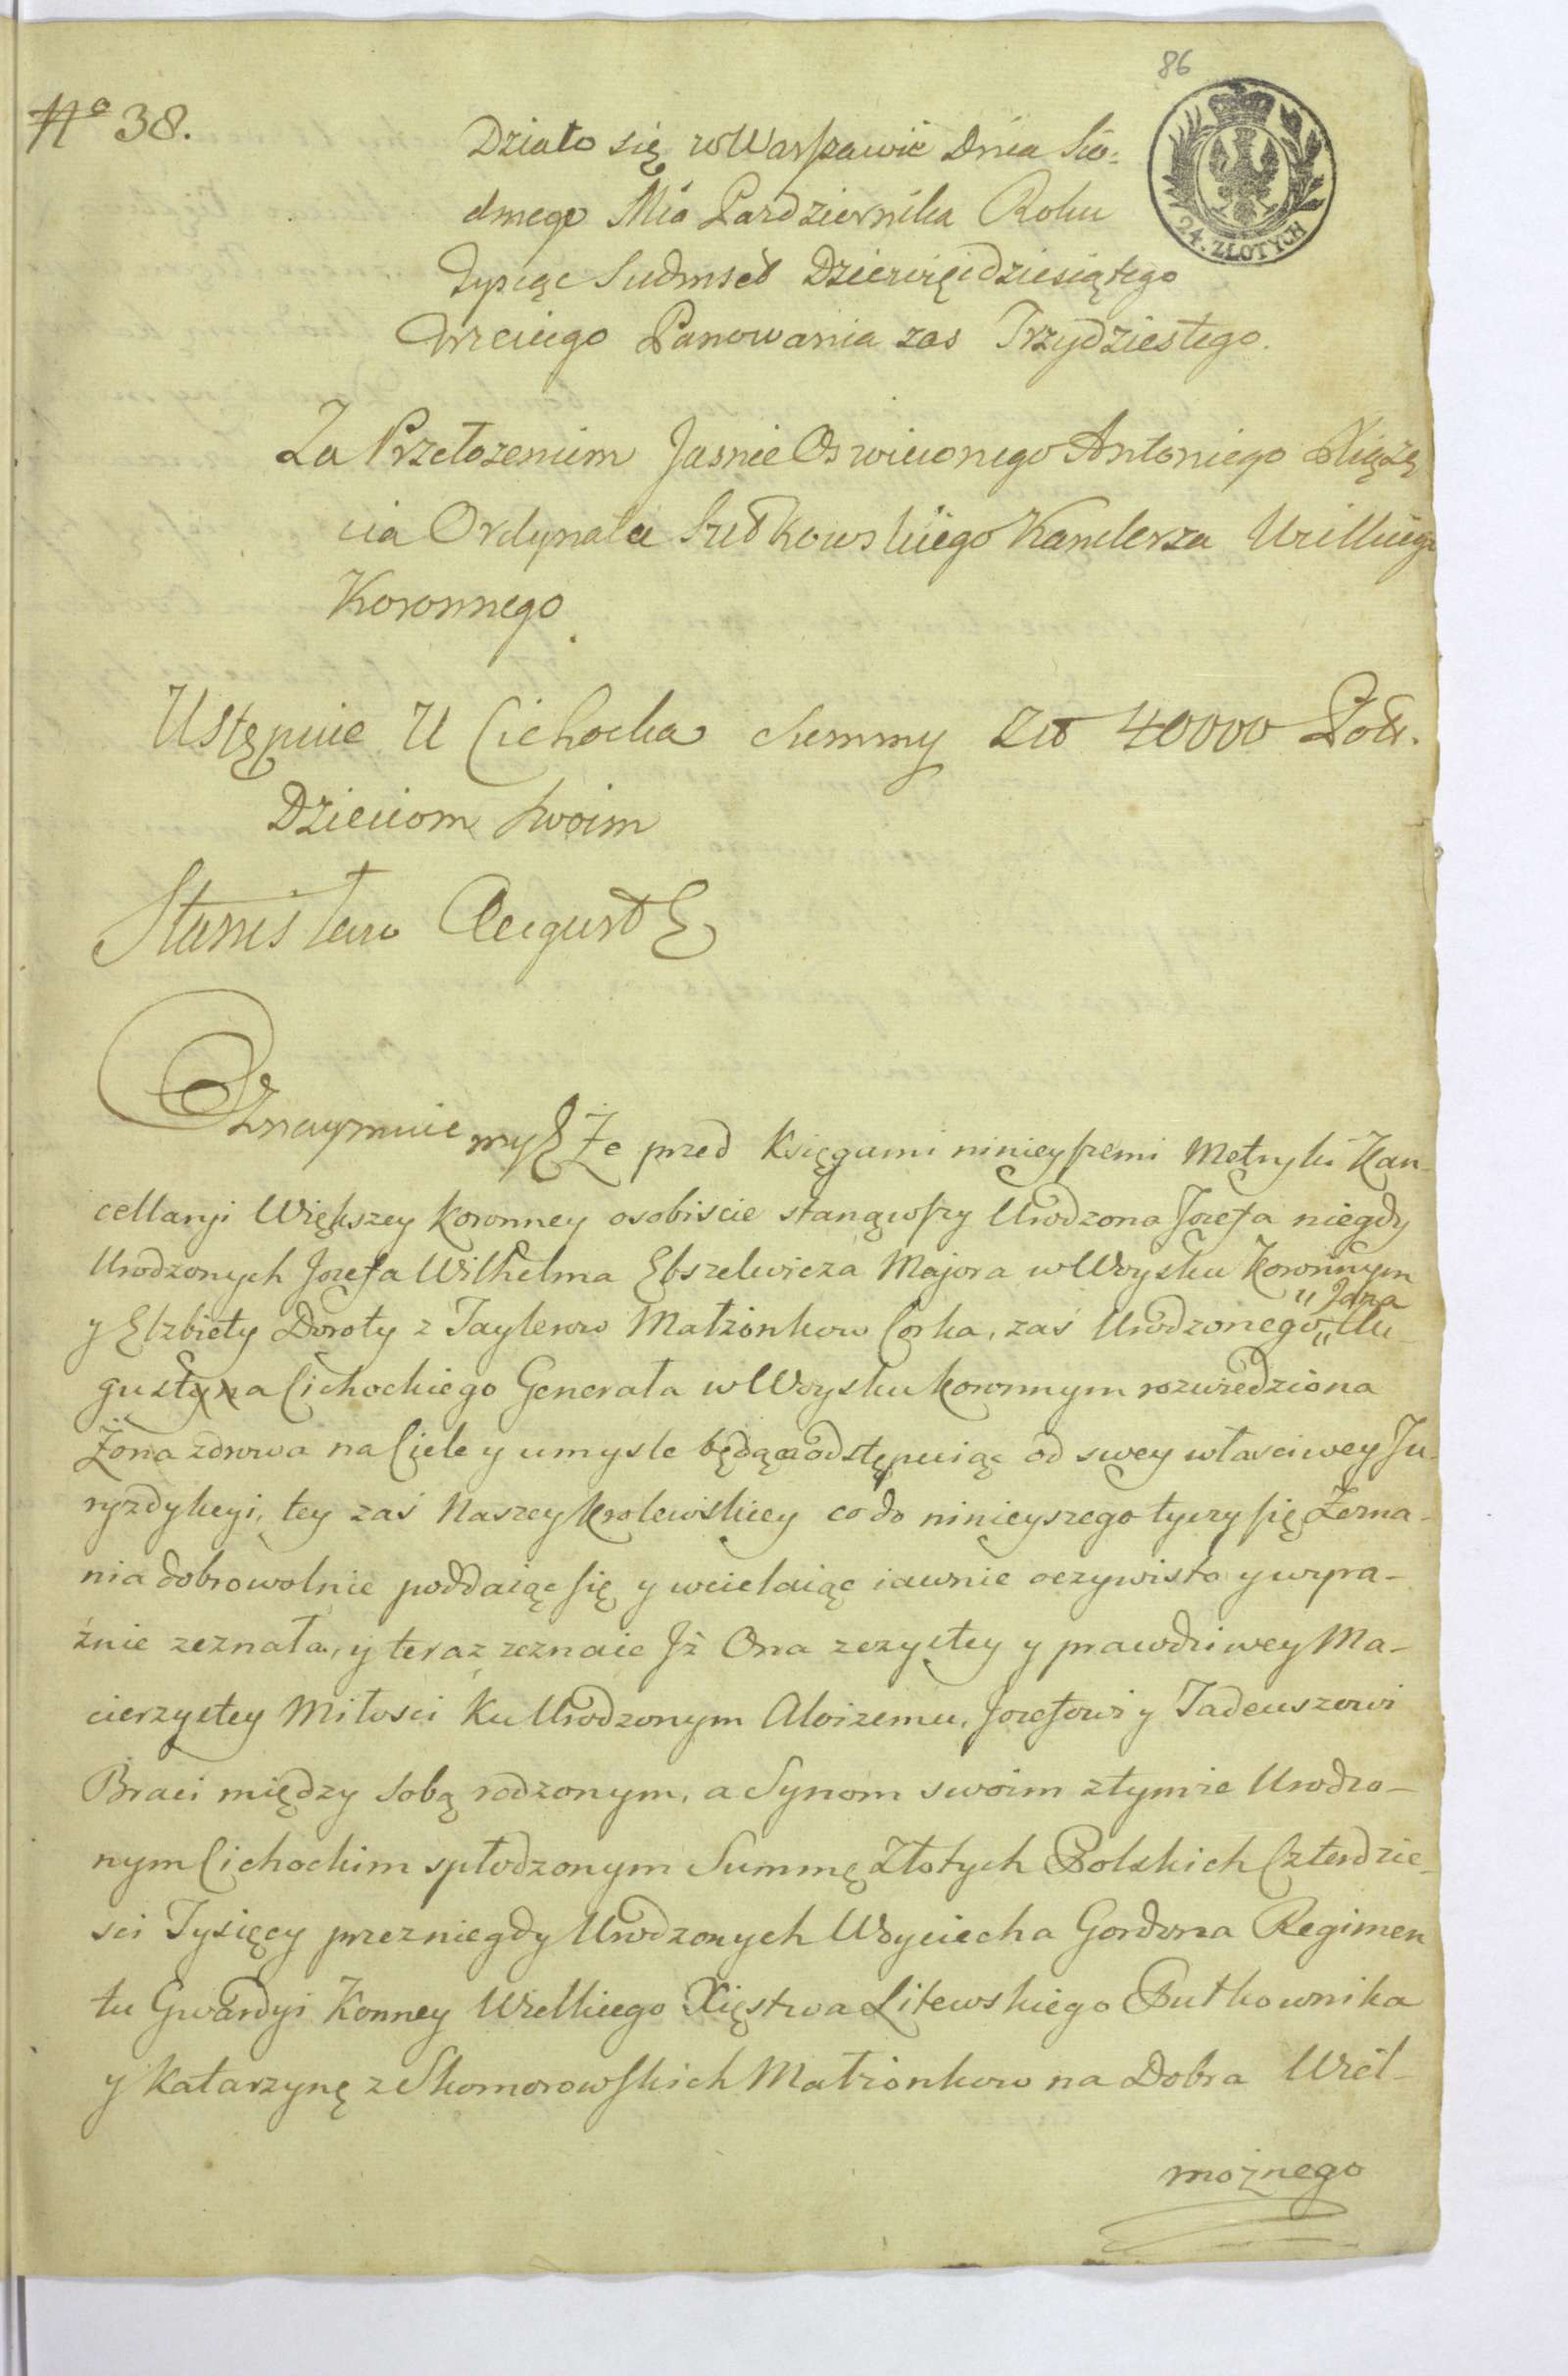 86
No 38.
24. ZŁOTYCH
Działo się w Warszawie Dnia Sió-
dmego Mca Pazdziernika Roku
Tysiąc Siedmset Dziewięćdziesiątego
trzeciego Panowania zas Trzydziestego.
Za Przełozeniem Jasnie Oswieconego Antoniego Xiąże
cia Ordynata Sułkowskiego Kanclerza Wielkiego
Koronnego
Ustępuie U Cichocka Summy Zło 40000 Pols.
Dzieciom Swoim
Stanisław August
Oznaymuiemy Że przed Księgami ninieyszemi Metryki Kan-
cellaryi Większey Koronney osobiscie stanąwszy Urodzona Jozefa niegdy
Urodzonych Jozefa Wilhelma Ebszelwicza Majora w Woysku Koronnym
y Elzbiety Doroty z Taylerow Małżonkow Corka, zaś Urodzonego " Jana " Au
gusta Cichockiego Generała w Woysku koronnym rozwiedziona
Żona zdrowa na Ciele y umysle będąca odstępuiąc od swey własciwey Ju-
ryzdykcyi, tey zaś Naszey Krolewskiey co do ninieyszego tyczy się Zezna-
nia dobrowolnie poddaiąc się y wcielaiąc iawnie oczywisto y wyra-
źnie zeznała, y teraz zeznaie Jż Ona z czystey y prawdziwey Ma-
cierzystey Miłosci Ku Urodzonym Aloizemu, Jozefowi y Tadeuszowi
Braci między Sobą rodzonym, a Synom swoim z tymże Urodzo-
nym Cichockim spłodzonym Summę Złotych Polskich Czterdzie-
sci Tysięcy przez niegdy Urodzonych Woyciecha Gordona Regimen
tu Gwardyi Konney Wielkiego Xięstwa Litewskiego Pułkownika
y Katarzynę z Skomorowskich Małżonkow na Dobra Wiel-
możnego